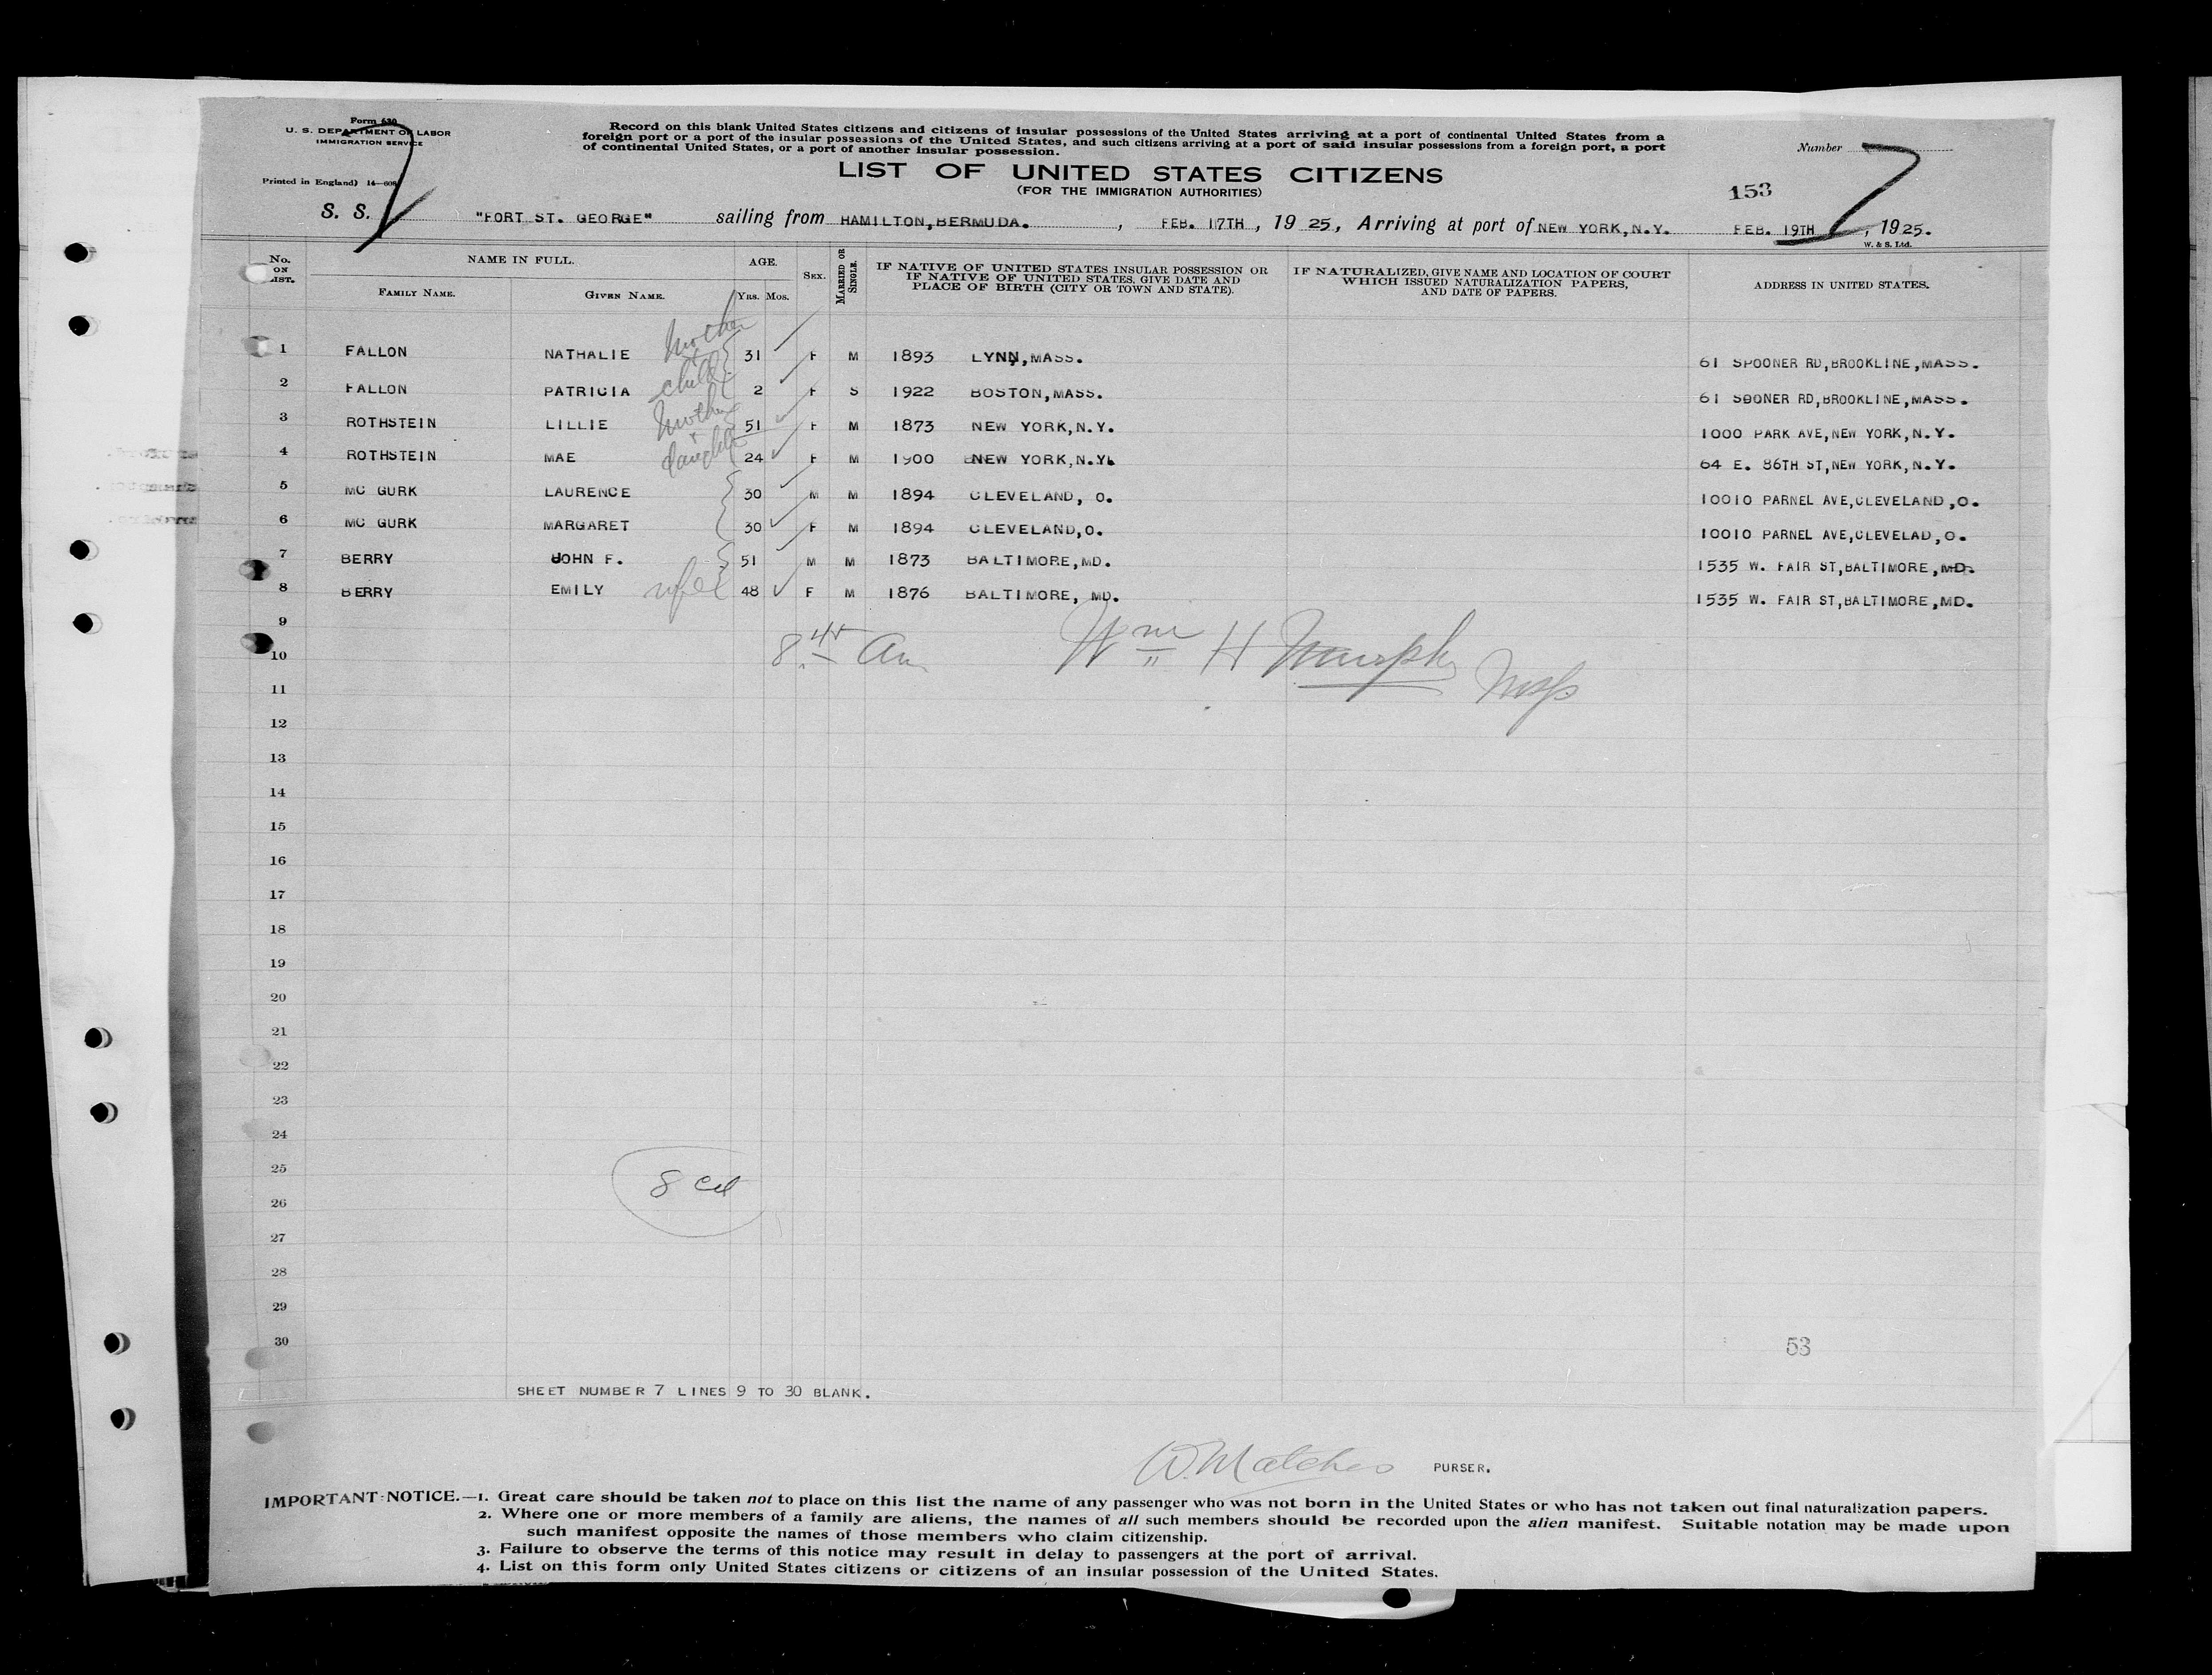 Form 630
U. S. DEPARTMENT OF LABOR
IMMIGRATION SERVICE
Printed in England) 14—608
Record on this blank United States citizens and citizens of insular possessions of the United States arriving at a port of continental United States from a
foreign port or a port of the insular possessions of the United States, and such citizens arriving at a port of said insular possessions from a foreign port, a port
of continental United States, or a port of another insular possession.
LIST OF UNITED STATES CITIZENS
(FOR THE IMMIGRATION AUTHORITIES)
Number 7
153
S. S. "FORT ST. GEORGE" sailing from HAMILTON,BERMUDA. , FEB. 17TH , 19 25, Arriving at port of NEW YORK,N.Y. FEB. 19TH , 1925.
W. & S. Ltd.
No. ON LIST. NAME IN FULL. AGE. SEX. MARRIED OR SINGLE. IF NATIVE OF UNITED STATES INSULAR POSSESSION OR IF NATIVE OF UNITED STATES, GIVE DATE AND PLACE OF BIRTH (CITY OR TOWN AND STATE). IF NATURALIZED, GIVE NAME AND LOCATION OF COURT WHICH ISSUED NATURALIZATION PAPERS, AND DATE OF PAPERS. ADDRESS IN UNITED STATES.
FAMILY NAME. GIVEN NAME. YRS. MOS.
1 FALLON NATHALIE Mother 31 F M 1893 LYNN,MASS. 61 SPOONER RD,BROOKLINE,MASS.
2 FALLON PATRICIA + child 2 F S 1922 BOSTON,MASS. 61 SOONER RD,BROOKLINE,MASS.
3 ROTHSTEIN LILLIE Mother 51 F M 1873 NEW YORK,N.Y. 1000 PARK AVE,NEW YORK,N.Y.
4 ROTHSTEIN MAE + daughter 24 F M 1900 NEW YORK,N.Y. 64 E. 86TH ST,NEW YORK,N.Y.
5 MC GURK LAURENCE 30 M M 1894 CLEVELAND, O. 10010 PARNEL AVE,CLEVELAND,O.
6 MC GURK MARGARET 30 F M 1894 CLEVELAND,O. 10010 PARNEL AVE,CLEVELAD,O.
7 BERRY JOHN F. 51 M M 1873 BALTIMORE,MD. 1535 W. FAIR ST,BALTIMORE,MD.
8 BERRY EMILY wife 48 F M 1876 BALTIMORE, MD. 1535 W. FAIR ST,BALTIMORE,MD.
9
10 8.45 Am Wm H Murphy Insp
11
12
13
14
15
16
17
18
19
20
21
22
23
24
25
8 cit
26
27
28
29
30
53
SHEET NUMBER 7 LINES 9 TO 30 BLANK.
W. Matches PURSER.
IMPORTANT NOTICE.—1. Great care should be taken not to place on this list the name of any passenger who was not born in the United States or who has not taken out final naturalization papers.
2. Where one or more members of a family are aliens, the names of all such members should be recorded upon the alien manifest. Suitable notation may be made upon
such manifest opposite the names of those members who claim citizenship.
3. Failure to observe the terms of this notice may result in delay to passengers at the port of arrival.
4. List on this form only United States citizens or citizens of an insular possession of the United States.